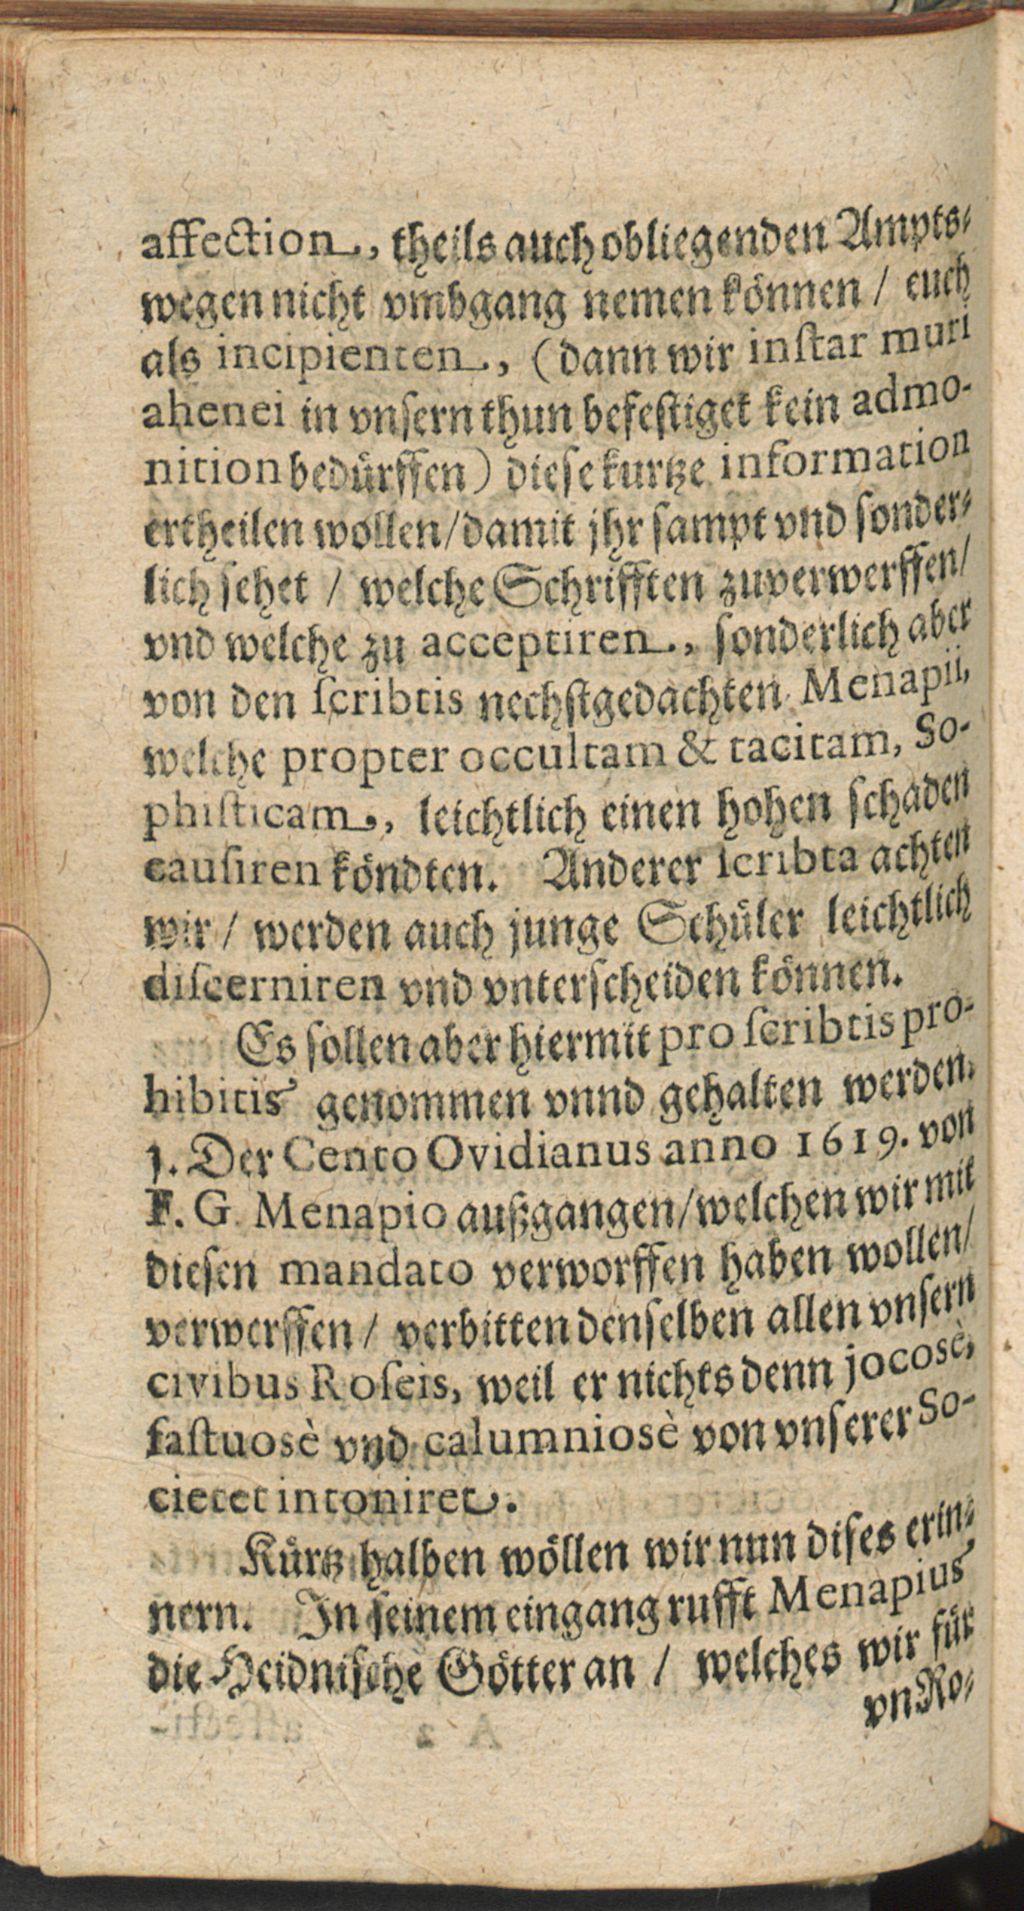 affection, theils auch obliegenden Ampts⸗
wegen nicht vmbgang nemen können / euch
als incipienten, (dann wir inſtar muri
ahenei in vnſern thun befeſtiget kein admo-
nition bedürffen) dieſe kurtze information
ertheilen wollen/damit jhr ſampt vnd ſonder⸗
lich ſehet / welche Schrifften zuverwerffen/
vnd welche zu acceptiren, ſonderlich aber
von den ſcribtis nechſtgedachten Menapii,
welche propter occultam & tacitam, So-
phiſticam, leichtlich einen hohen ſchaden
cauſiren köndten. Anderer ſcribta achten
wir / werden auch junge Schüler leichtlich
diſcerniren vnd vnterſcheiden können.
Es ſollen aber hiermit pro ſcribtis pro-
hibitis genommen vnnd gehalten werden.
1. Der Cento Ovidianus anno 1619. von
F. G. Menapio außgangen/welchen wir mit
dieſen mandato verworffen haben wollen/
verwerffen / verbitten denſelben allen vnſern
civibus Roſeis, weil er nichts denn jocosè,
faſtuosè vnd calumniosè von vnſerer So-
cietet intoniret.
Kürtz halben wöllen wir nun diſes erin⸗
nern. In ſeinem eingang rufft Menapius
die Heidniſche Götter an / welches wir für
vnRo⸗